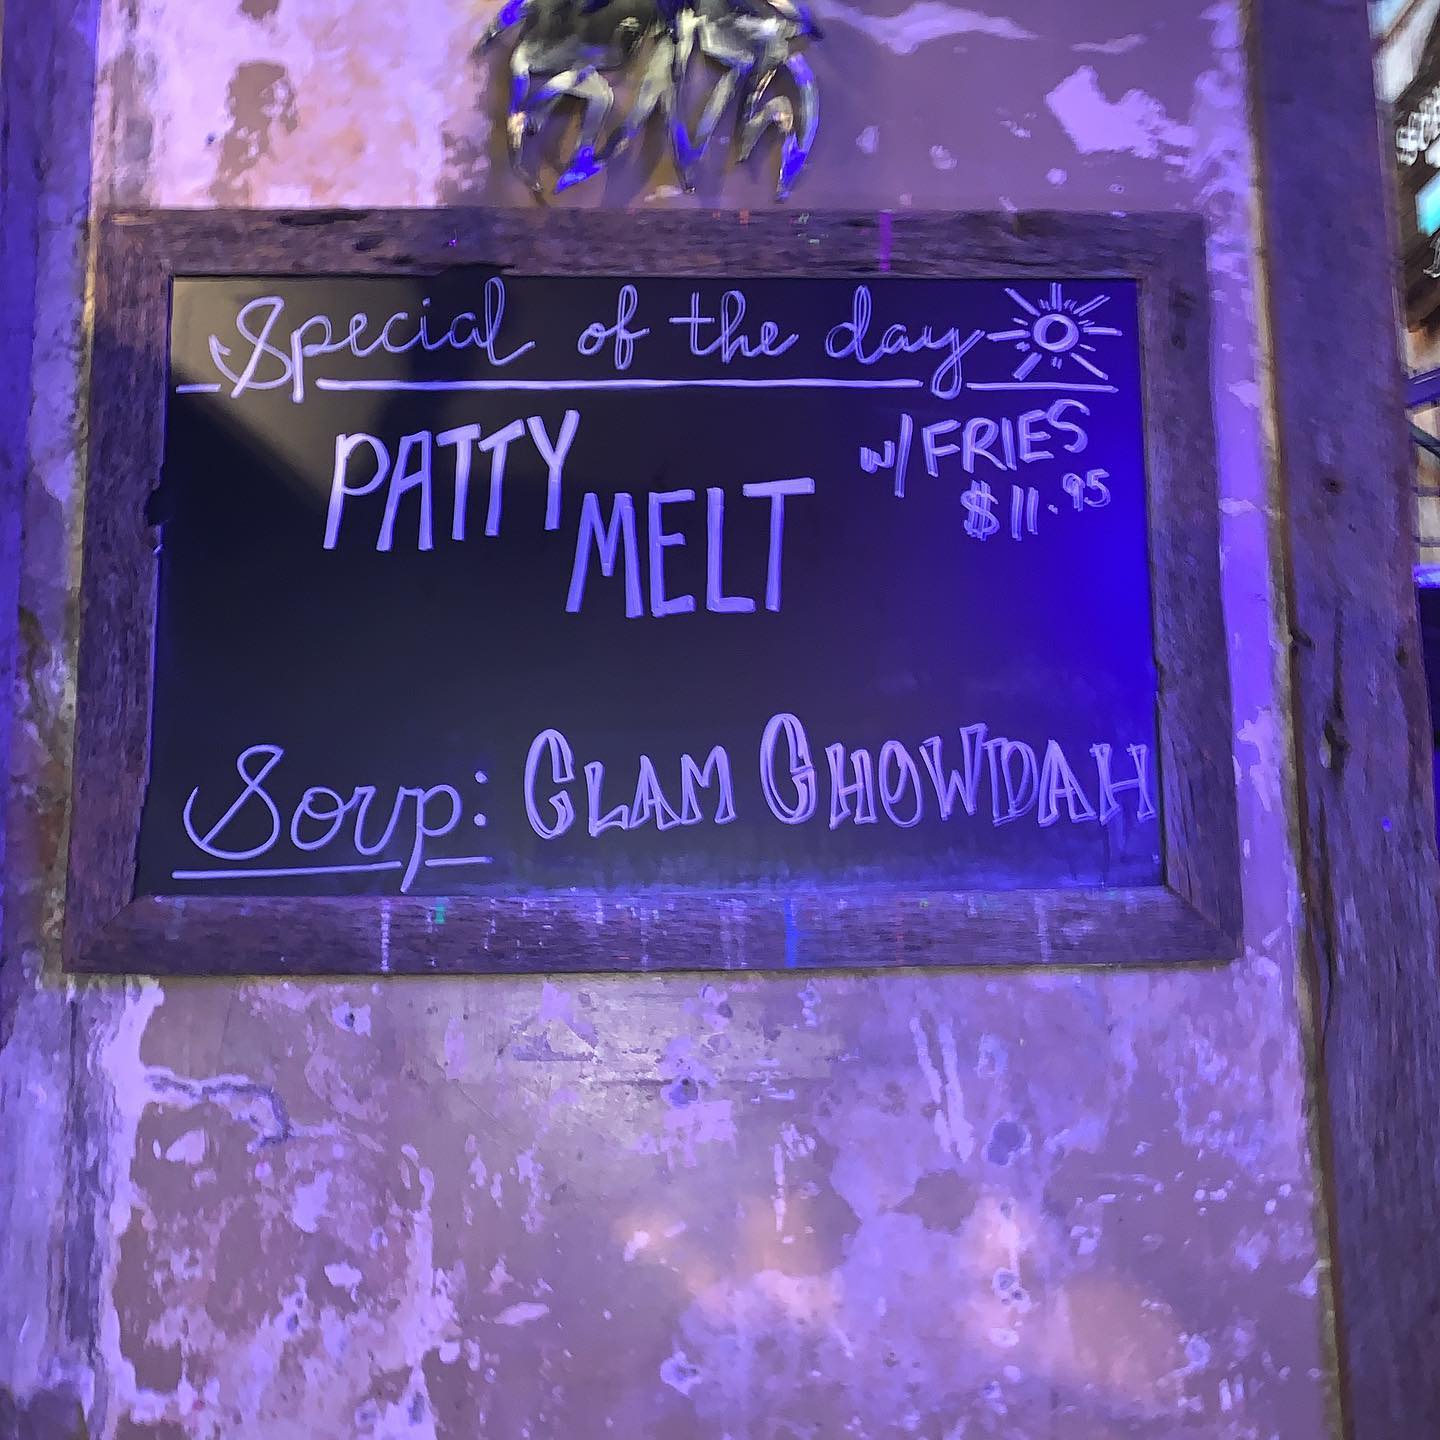 Special of the day
PATTY MELT
w/ FRIES
$11.95
Soup: CLAM CHOWDAH